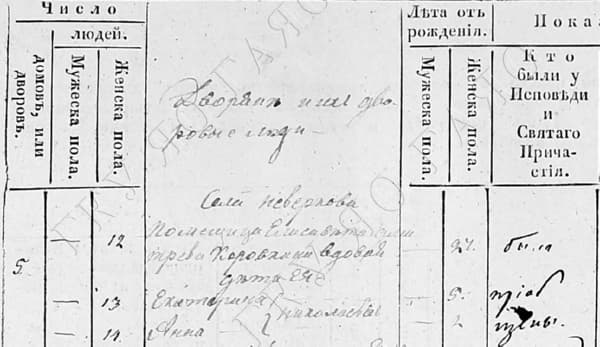 Число
людей.
Лѣта отъ
рожденія.
Пока
домовъ, или
дворовъ.
Мужеска пола.
Женска пола.
Мужеска пола.
Женска пола.
Кто
были у
Исповѣди
и
Святаго
Прича-
стія.
Дворяне и их дво-
ровые люди
Села Неверкова
12 Помещица Елисавета
вдова 27. была
5.
дѣти ея
13 Екатерина Николаевны 5. приоб
14 Анна 2 щены.